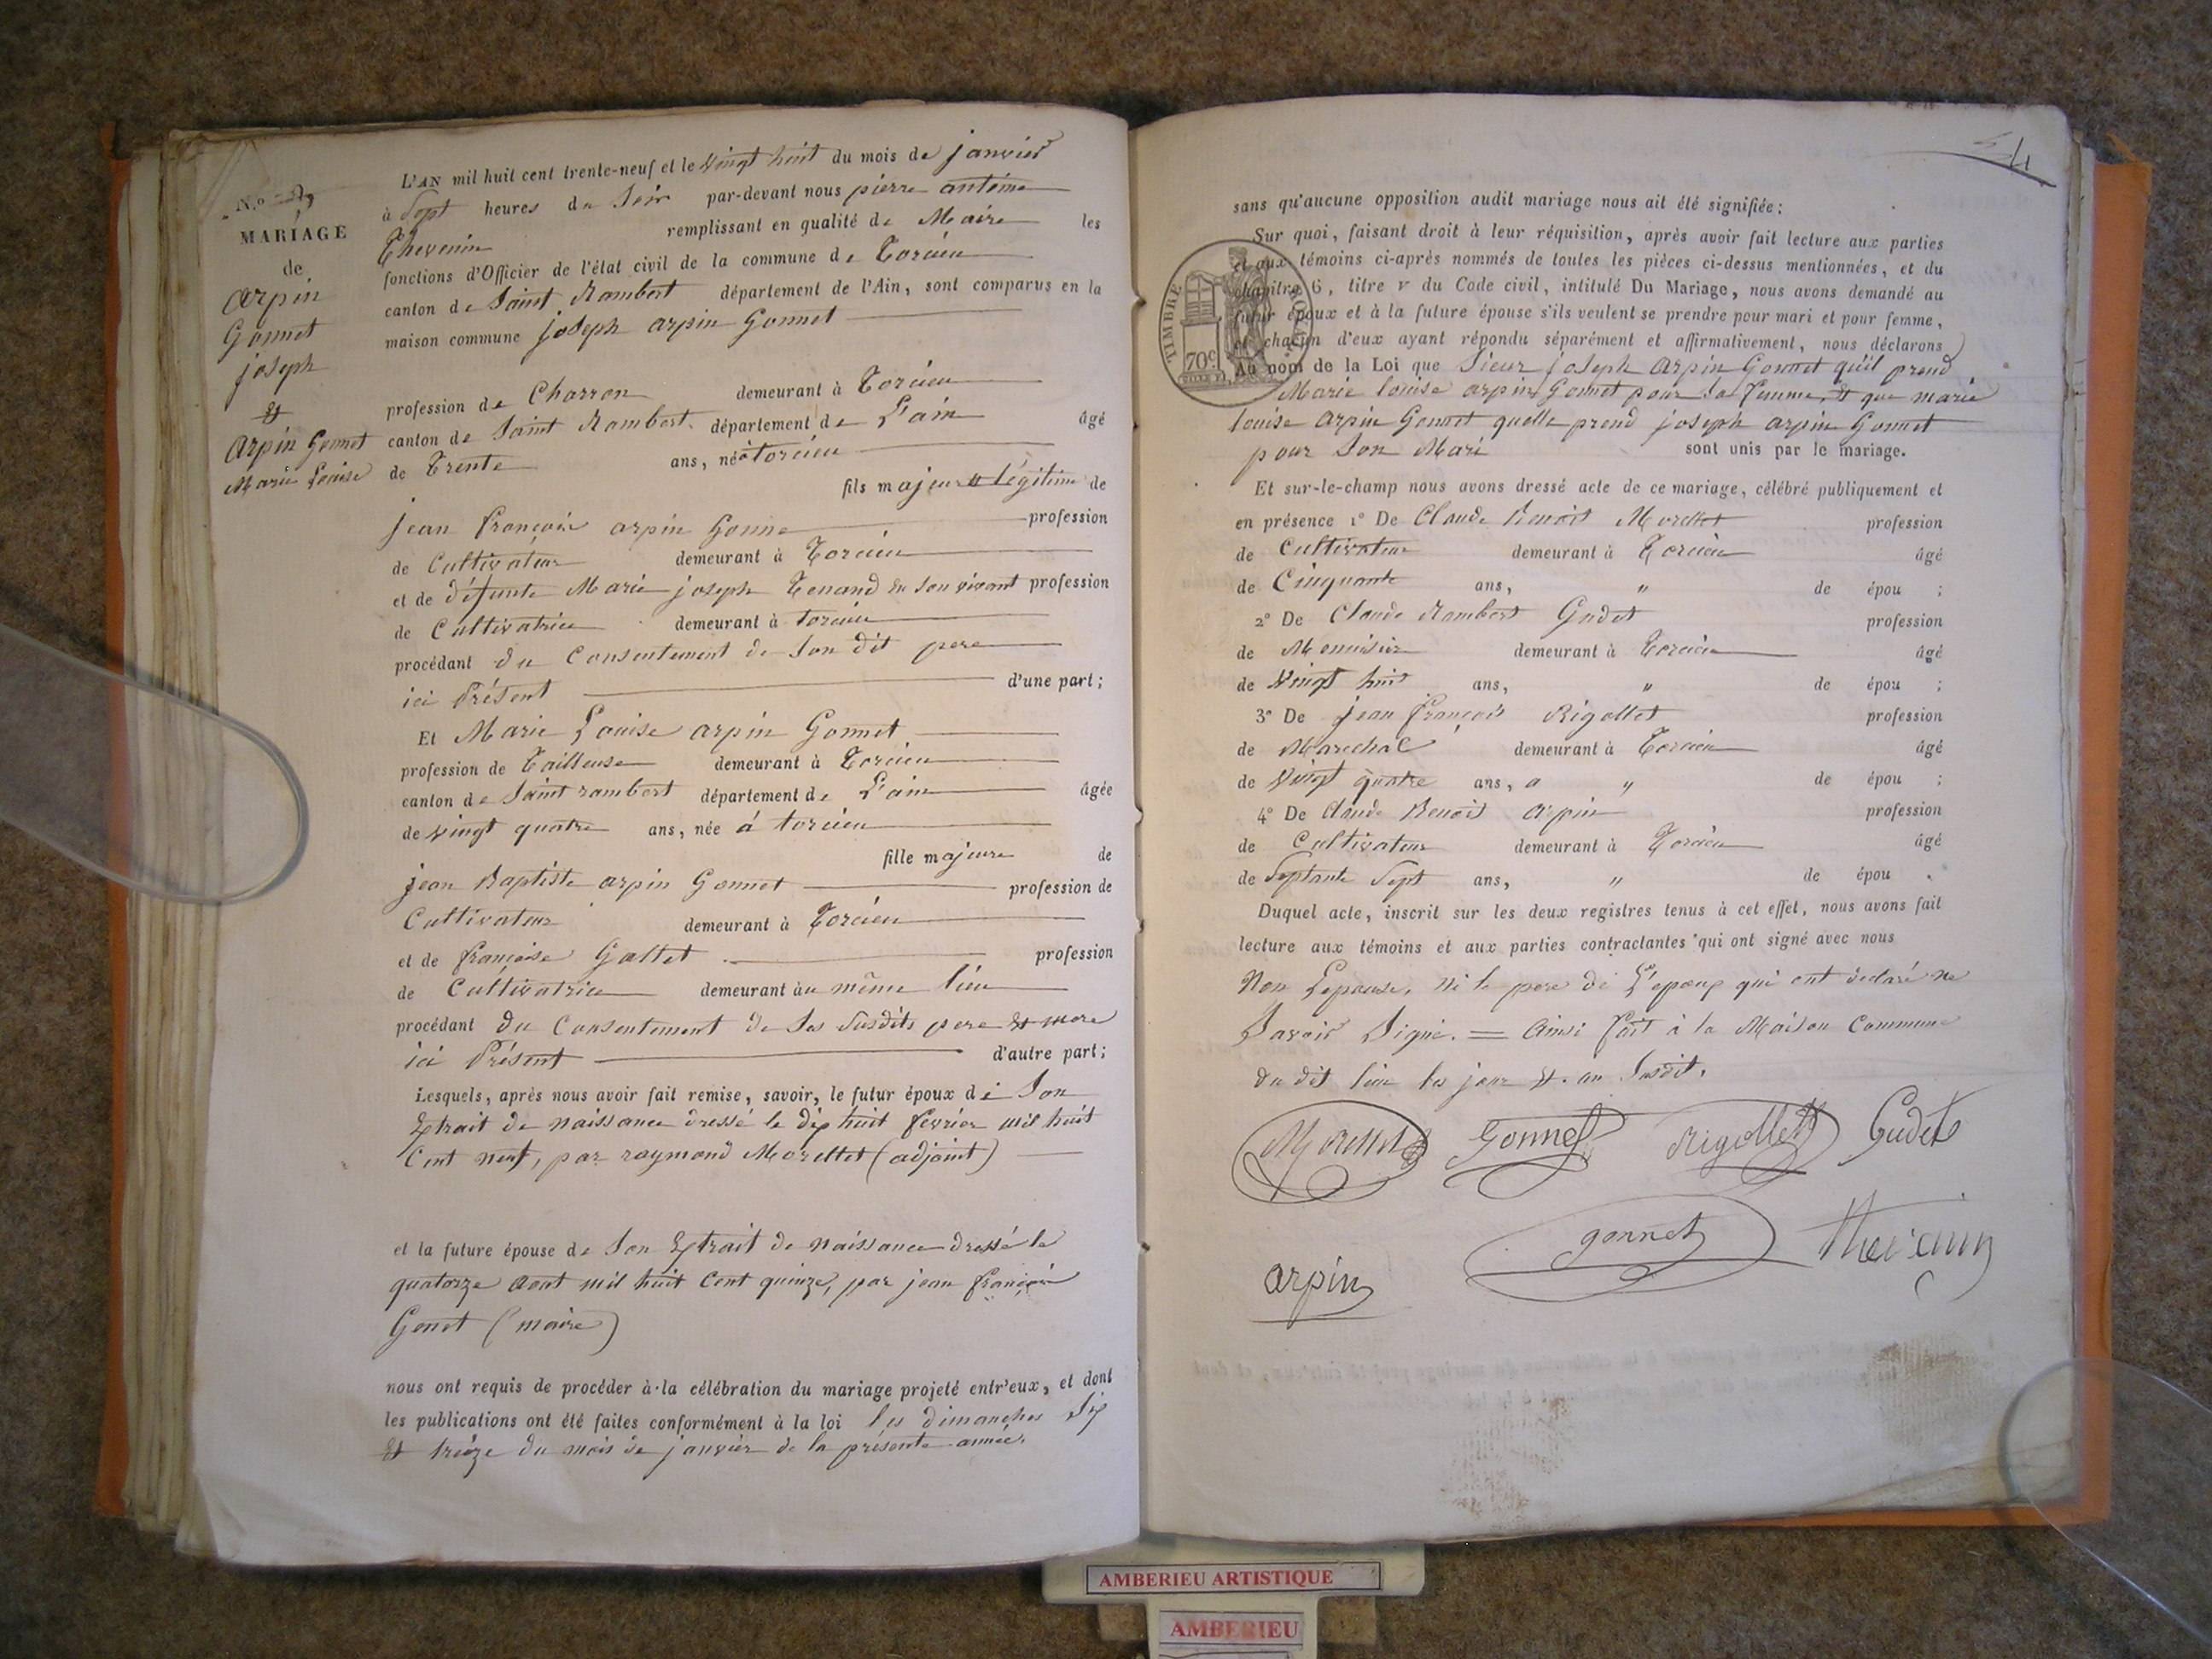 N.o
MARIAGE
de
arpin
Gonnet
joseph
et
arpin Gonnet
Marie Louise
L'AN mil huit cent trente-neuf et le vingt huit du mois de janvier
à Sept heures du Soir par-devant nous pierre antême
Thevenin remplissant en qualité de Maire les
fonctions d'Officier de l'état civil de la commune de Torcieu
canton de Saint Rambert département de l'Ain, sont comparus en la
maison commune joseph arpin Gonnet
profession de Charron demeurant à Torcieu
canton de Saint Rambert département de L'ain âgé
de Trente ans, né à torcieu
fils majeur et légitime de
jean françois arpin Gonne profession
de Cultivateur demeurant à Torcieu
et de défunte Marie joseph Tenand en son vivant profession
de Cultivatrice demeurant à torcieu
procédant du Consentement de Son dit pere
ici Présent d'une part;
Et Marie Louise arpin Gonnet
profession de Tailleuse demeurant à Torcieu
canton de Saint rambert département de L'ain âgée
de vingt quatre ans, née à torcieu
fille majeure de
jean Baptiste arpin Gonnet profession de
Cultivateur demeurant à Torcieu
et de françoise Gallet profession
de Cultivatrice demeurant au même lieu
procédant du Consentement de Ses Susdits pere et mere
ici Présent d'autre part;
Lesquels, après nous avoir fait remise, savoir, le futur époux de Son
Extrait de naissance dressé le dix huit février mil huit
Cent neuf, par raymond Morellet (adjoint)
et la future épouse de Son Extrait de naissance dressé le
quatorze aout mil huit Cent quinze, par jean françois
Gonet (maire)
nous ont requis de procéder à la célébration du mariage projeté entr'eux, et dont
les publications ont été faites conformément à la loi les dimanches Six
et treize du mois de janvier de la présente année.
sans qu'aucune opposition audit mariage nous ait été signifiée;
Sur quoi, faisant droit à leur réquisition, après avoir fait lecture aux parties
et aux témoins ci-après nommés de toutes les pièces ci-dessus mentionnées, et du
chapitre 6, titre v du Code civil, intitulé Du Mariage, nous avons demandé au
futur époux et à la future épouse s'ils veulent se prendre pour mari et pour femme,
et chacun d'eux ayant répondu séparément et affirmativement, nous déclarons
Au nom de la Loi que Sieur joseph arpin Gonnet qu'il prend
Marie louise arpin Gonnet pour Sa femme, et que marie
louise arpin Gonnet quelle prend joseph arpin Gonnet
pour Son Mari sont unis par le mariage.
TIMBRE ROYAL
70c
Et sur-le-champ nous avons dressé acte de ce mariage, célébré publiquement et
en présence 1° De Claude Benoit Morellet profession
de Cultivateur demeurant à Torcieu âgé
de Cinquante ans, " de épou ;
2° De Claude Rambert Gudet profession
de Menuisier demeurant à Torcieu âgé
de vingt huit ans, " de épou ;
3° De jean françois Rigollet profession
de Marechal demeurant à Torcieu âgé
de vingt quatre ans, a " de épou ;
4° De Claude Benoit arpin profession
de Cultivateur demeurant à Torcieu âgé
de Septante Sept ans, " de épou .
Duquel acte, inscrit sur les deux registres tenus à cet effet, nous avons fait
lecture aux témoins et aux parties contractantes qui ont signé avec nous
Non L'epouse, ni le pere de L'epoux qui ont déclaré ne
Savoir Signé. = Ainsi fait à la Maison Commune
du dit lieu les jour et an Susdit.
Morellet Gonnet Rigollet Gudet
arpin gonnet Thevenin
AMBERIEU ARTISTIQUE
AMBERIEU